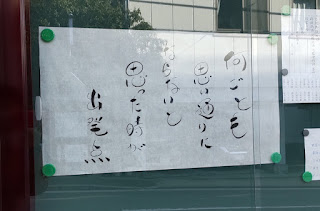 何ごとも
思い通りに
ならないと
思った時が
出発点